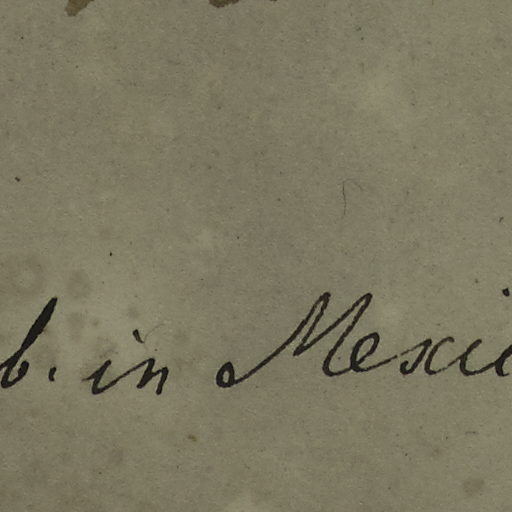 b. in Mexic